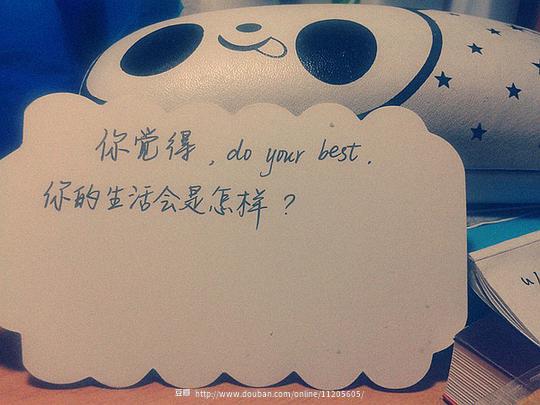 你觉得，do your best.
你的生活会是怎样？
豆瓣 http://www.douban.com/online/11205605/